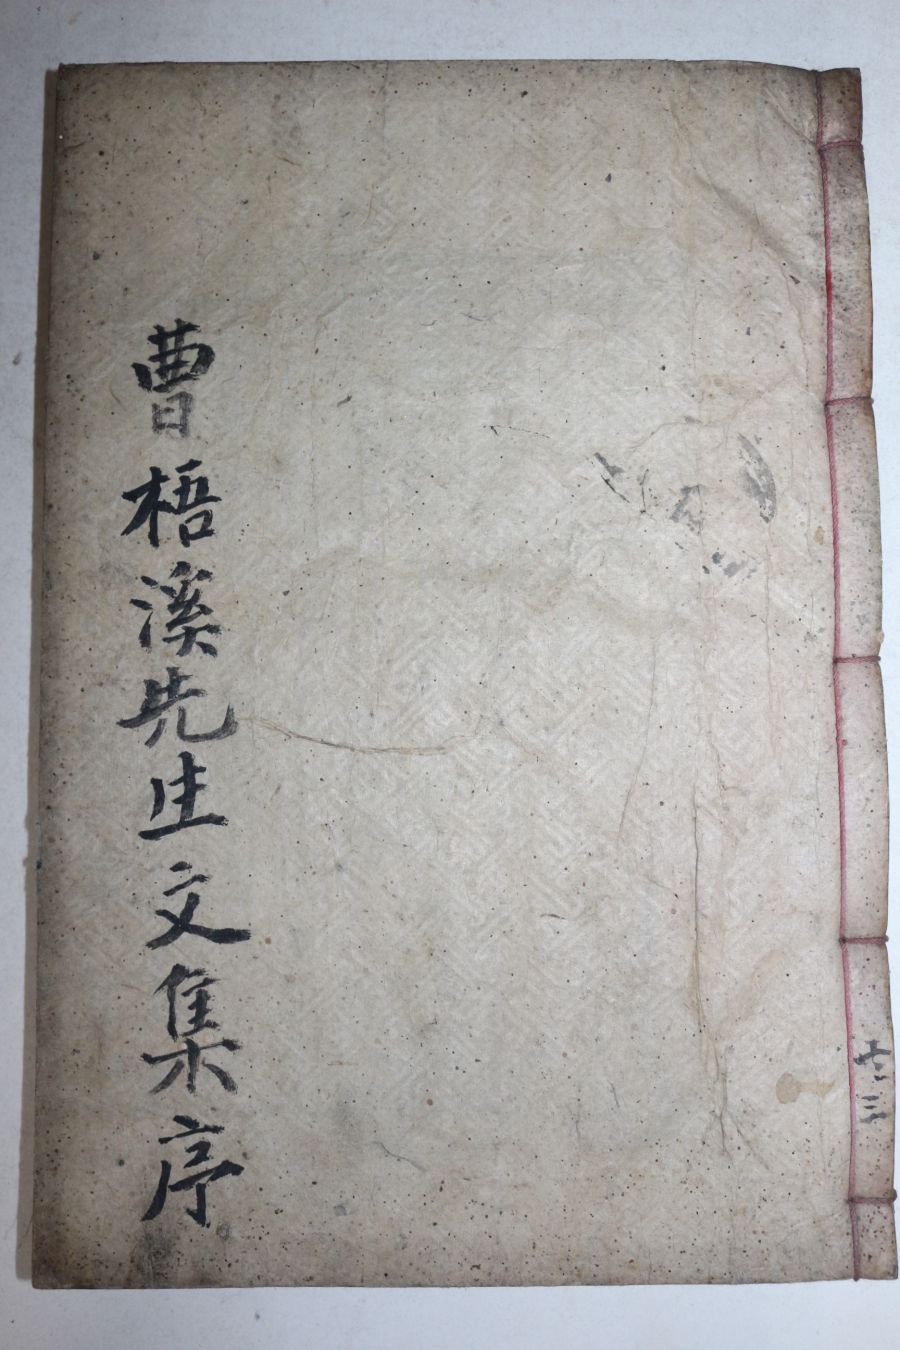 曹梧溪先生文集序